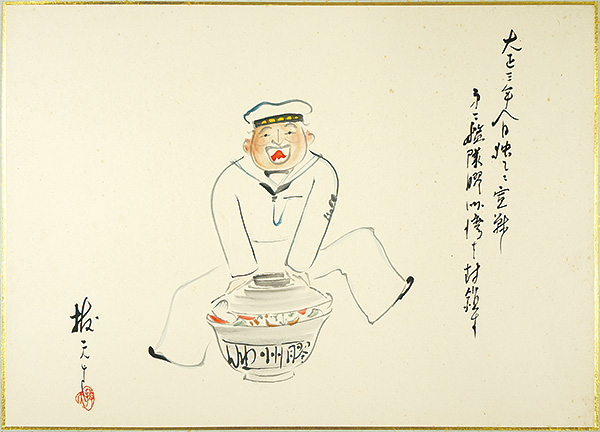 大正三年八月独乙ニ宣戦
第二艦隊膠州湾を封鎖す
膠州湾